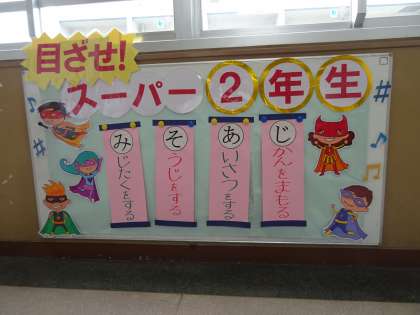 目ざせ!
スーパー2年生
じかんをまもる
あいさつをする
そうじをする
みじたくをする